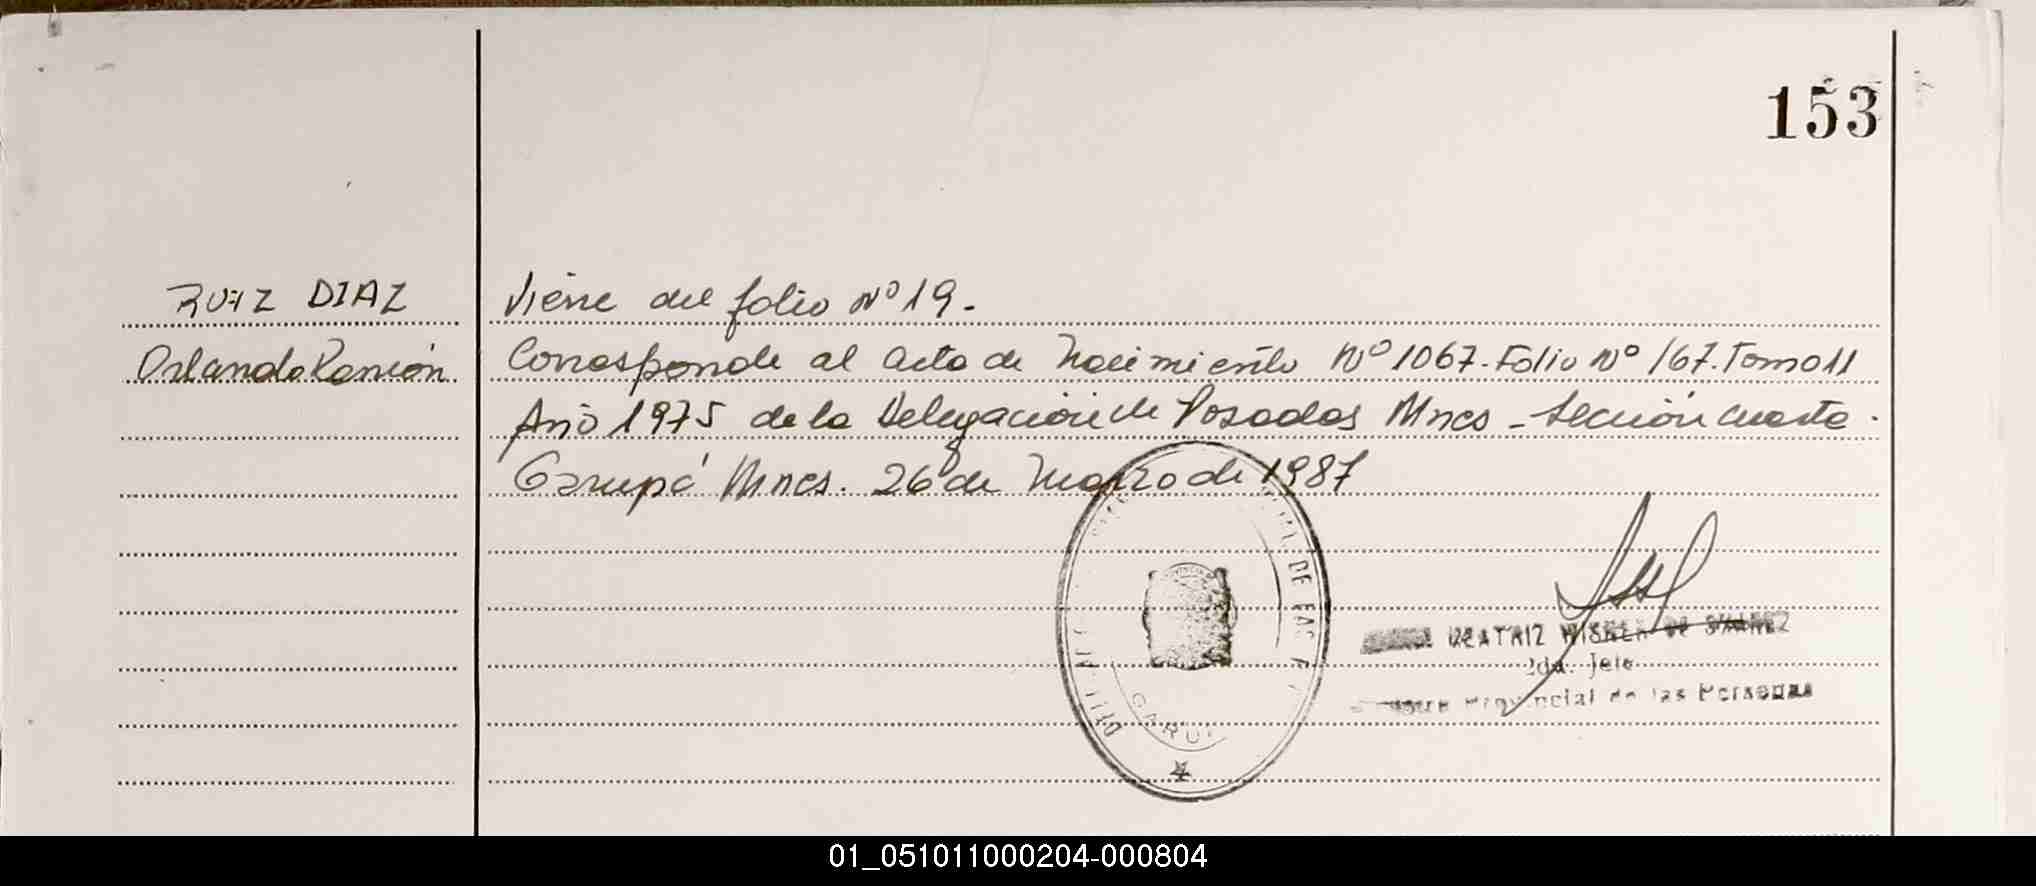 153
RUIZ DIAZ
Orlando Ramón
Viene del folio Nº 19.
Corresponde al acta de Nacimiento Nº 1067. Folio Nº 167. Tomo II
Año 1975 de la Delegación de Posadas Mnes - Sección cuarta.
Garupá Mnes. 26 de Marzo de 1987
DE
GARU
BEATRIZ DE
2da. Jefe
Provincial de las Personas
01_051011000204-000804